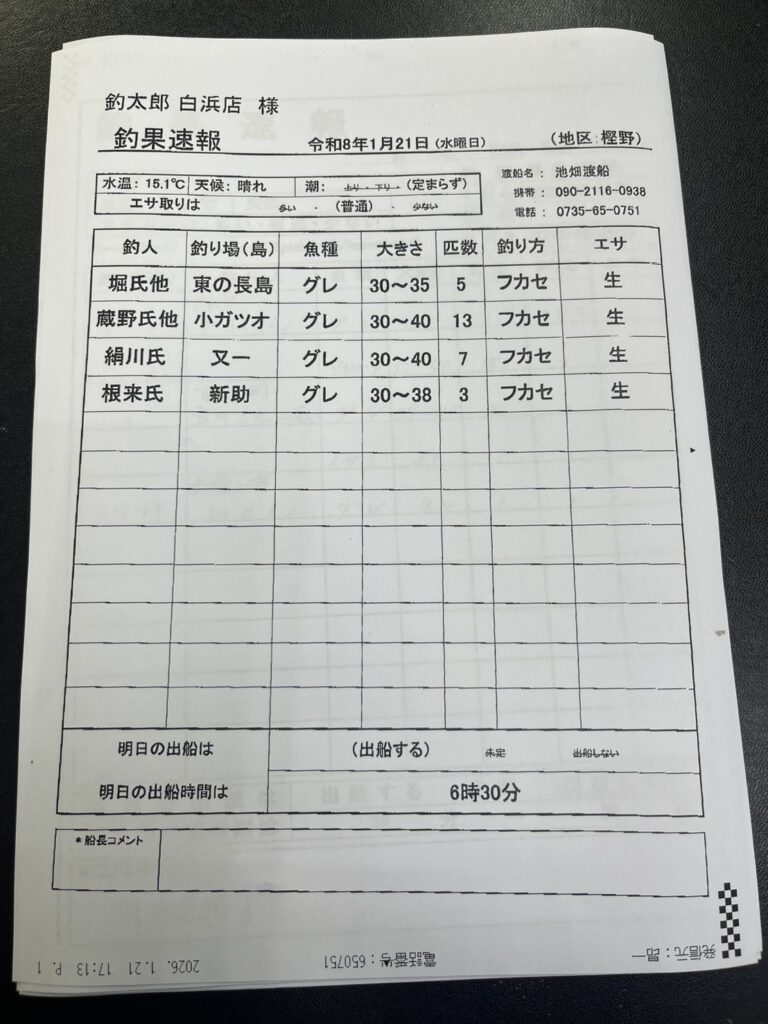 釣太郎 白浜店 様
釣果速報 令和8年1月21日(水曜日) (地区:樫野)
渡船名: 池畑渡船
携帯: 090-2116-0938
電話: 0735-65-0751
水温: 15.1℃ 天候: 晴れ 潮: 上り・下り・(定まらず)
エサ取りは 多い ・ (普通) ・ 少ない
釣人 釣り場(島) 魚種 大きさ 匹数 釣り方 エサ
堀氏他 東の長島 グレ 30～35 5 フカセ 生
蔵野氏他 小ガツオ グレ 30～40 13 フカセ 生
絹川氏 又一 グレ 30～40 7 フカセ 生
根来氏 新助 グレ 30～38 3 フカセ 生
明日の出船は (出船する) 未定 出船しない
明日の出船時間は 6時30分
*船長コメント
発信元:昴一 電話番号:650751 2026. 1.21 17:13 P. 1